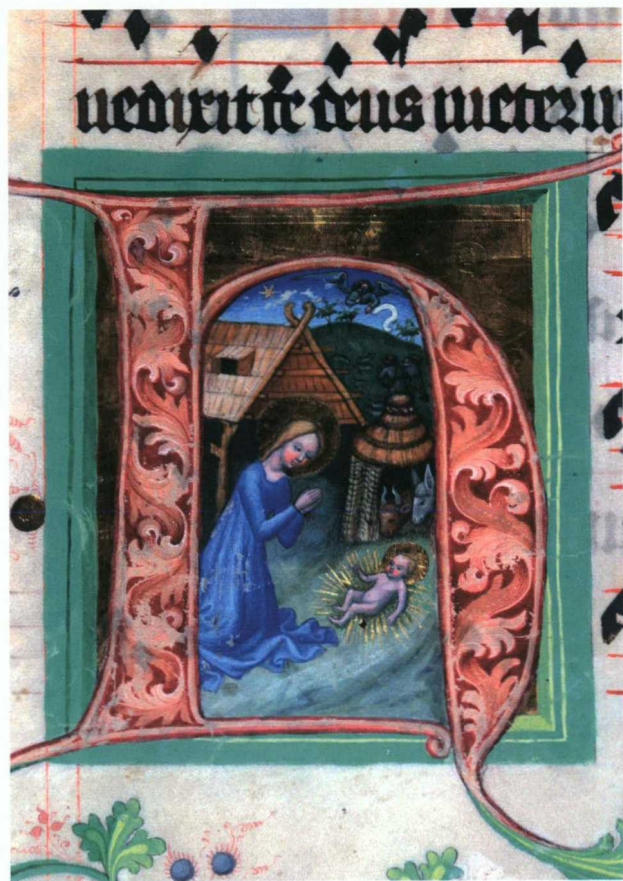 nedixit te deus in etern
H